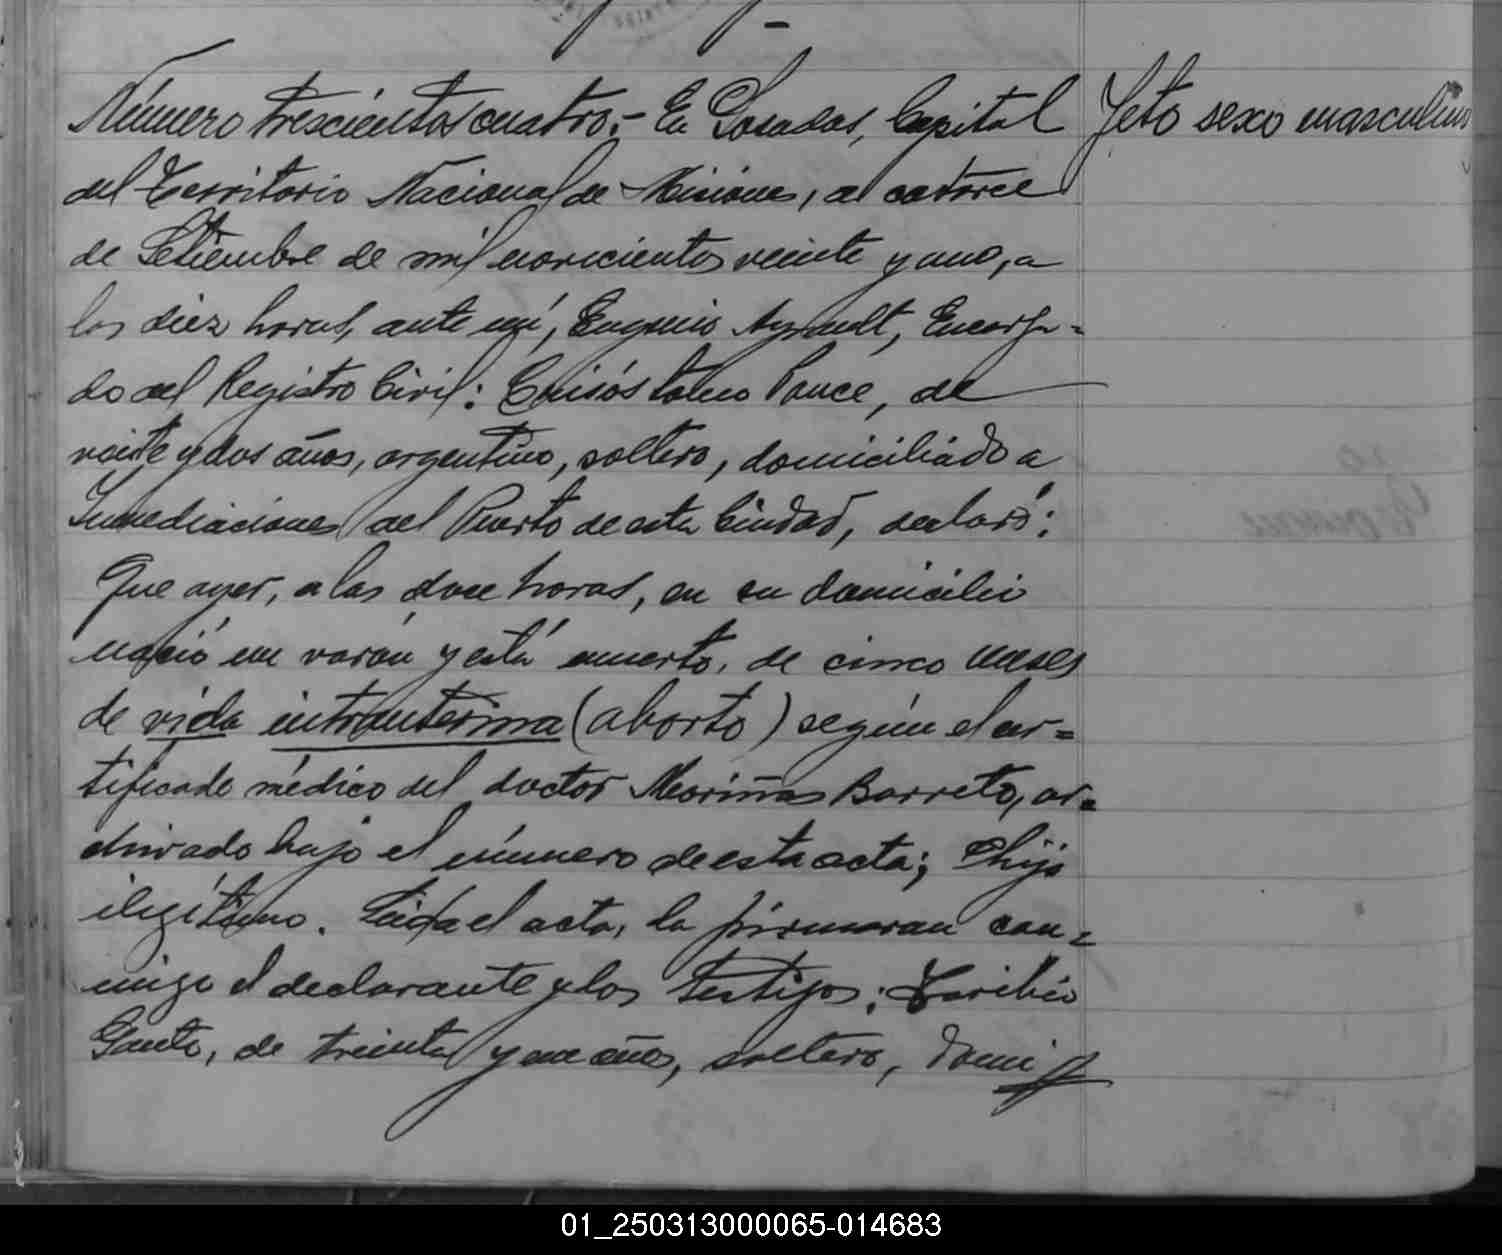 Número trescientos cuatro.- En Posadas, Capital
Feto sexo masculino
del Territorio Nacional de Misiones, a catorce
de Setiembre de mil novecientos veinte y uno, a
las diez horas, ante mí, Eugenio Ayrault, Encarga=
do del Registro Civil: Crisóstomo Ponce, de
veinte y dos años, argentino, soltero, domiciliado a
Inmediaciones del Puerto de esta Ciudad, declaró:
Que ayer, a las doce horas, en su domicilio
nació un varón y está muerto, de cinco meses
de vida intrauterina (aborto) según el cer=
tificado médico del doctor Mariño Barreto, ar=
chivado bajo el número de esta acta; Es hijo
ilegítimo. Leida el acta, la firmaron con=
migo el declarante y los testigos: Toribio
Gauto, de treinta y un años, soltero, domi
01_250313000065-014683